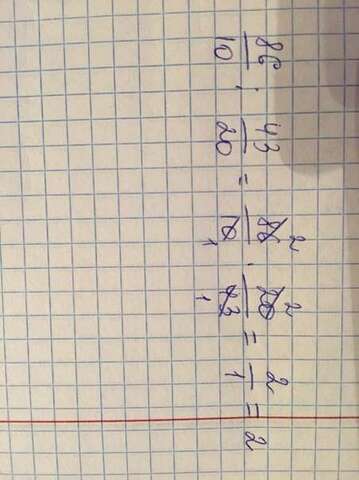 86/10 : 43/20 = 86 2/10 1 · 20 2/43 1 = 2/1 = 2